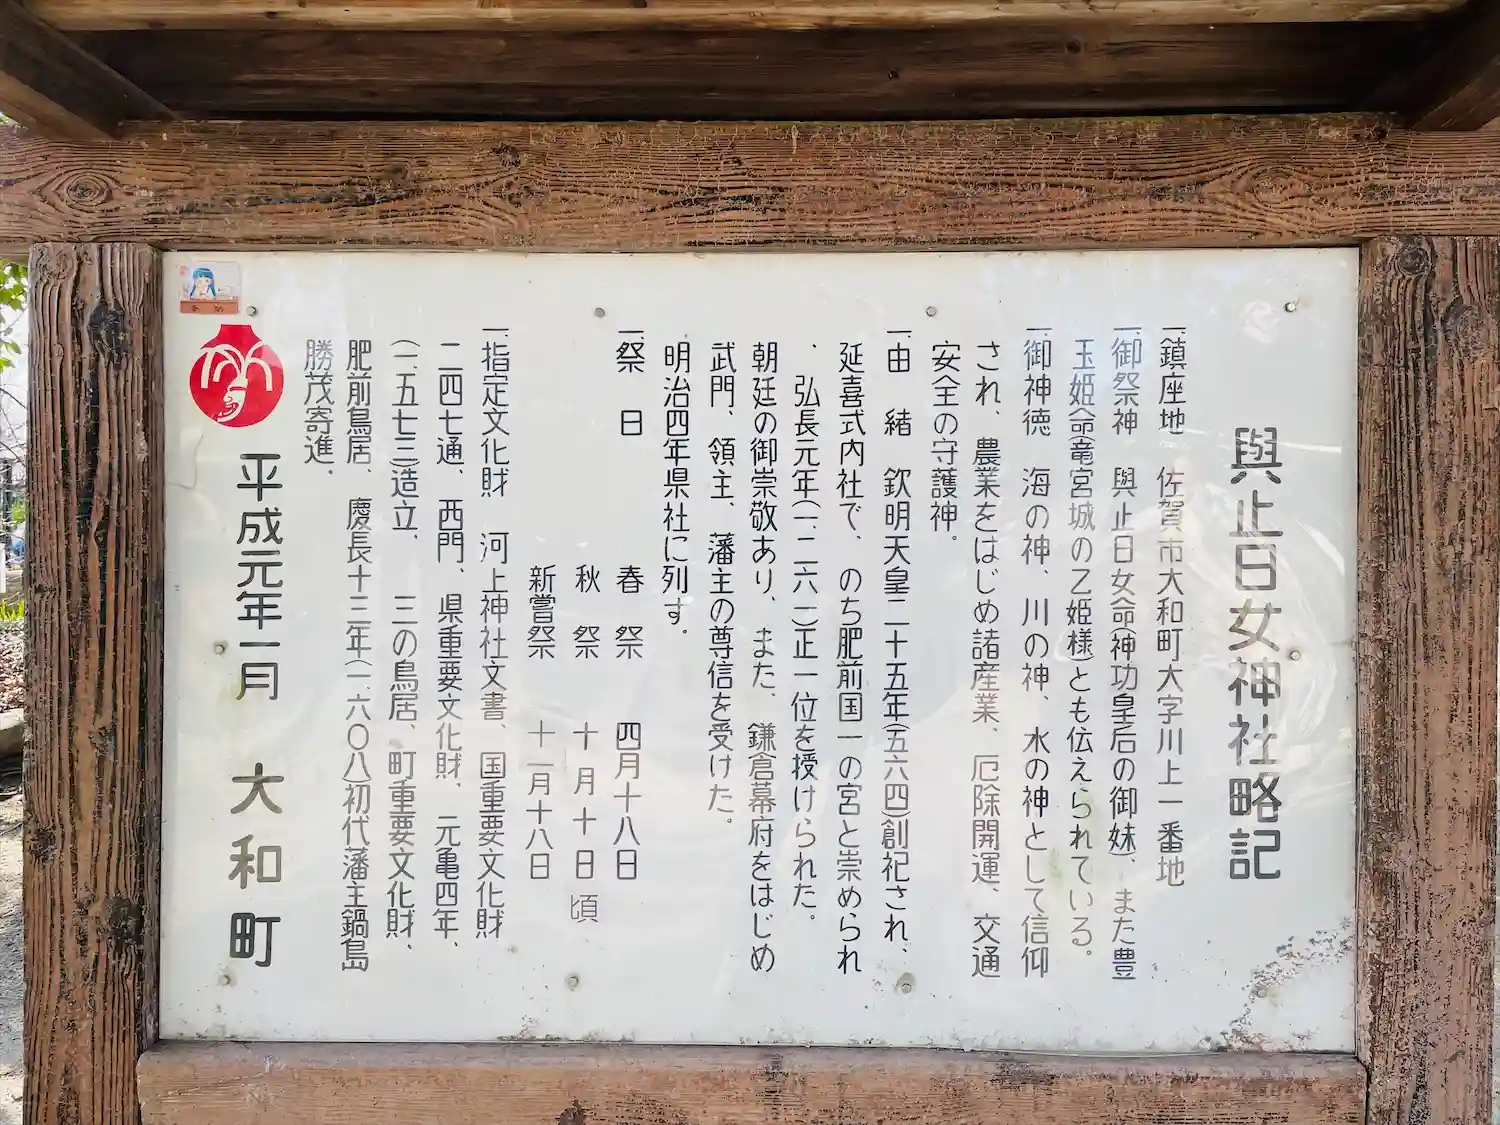 與止日女神社略記
一、鎮座地　佐賀市大和町大字川上一番地
一、御祭神　與止日女命(神功皇后の御妹)、また豊
玉姫命(竜宮城の乙姫様)とも伝えられている。
一、御神徳　海の神、川の神、水の神として信仰
され、農業をはじめ諸産業、厄除開運、交通
安全の守護神。
一、由　緒　欽明天皇二十五年(五六四)創祀され、
延喜式内社で、のち肥前国一の宮と崇められ
、弘長元年(一、二六一)正一位を授けられた。
朝廷の御崇敬あり、また、鎌倉幕府をはじめ
武門、領主、藩主の尊信を受けた。
明治四年県社に列す。
一、祭　日　春　祭　四月十八日
秋　祭　十月十日頃
新嘗祭　十一月十八日
一、指定文化財　河上神社文書、国重要文化財
二四七通、西門、県重要文化財、元亀四年、
(一、五七三)造立、三の鳥居、町重要文化財、
肥前鳥居、慶長十三年(一、六〇八)初代藩主鍋島
勝茂寄進。
平成元年一月　大和町